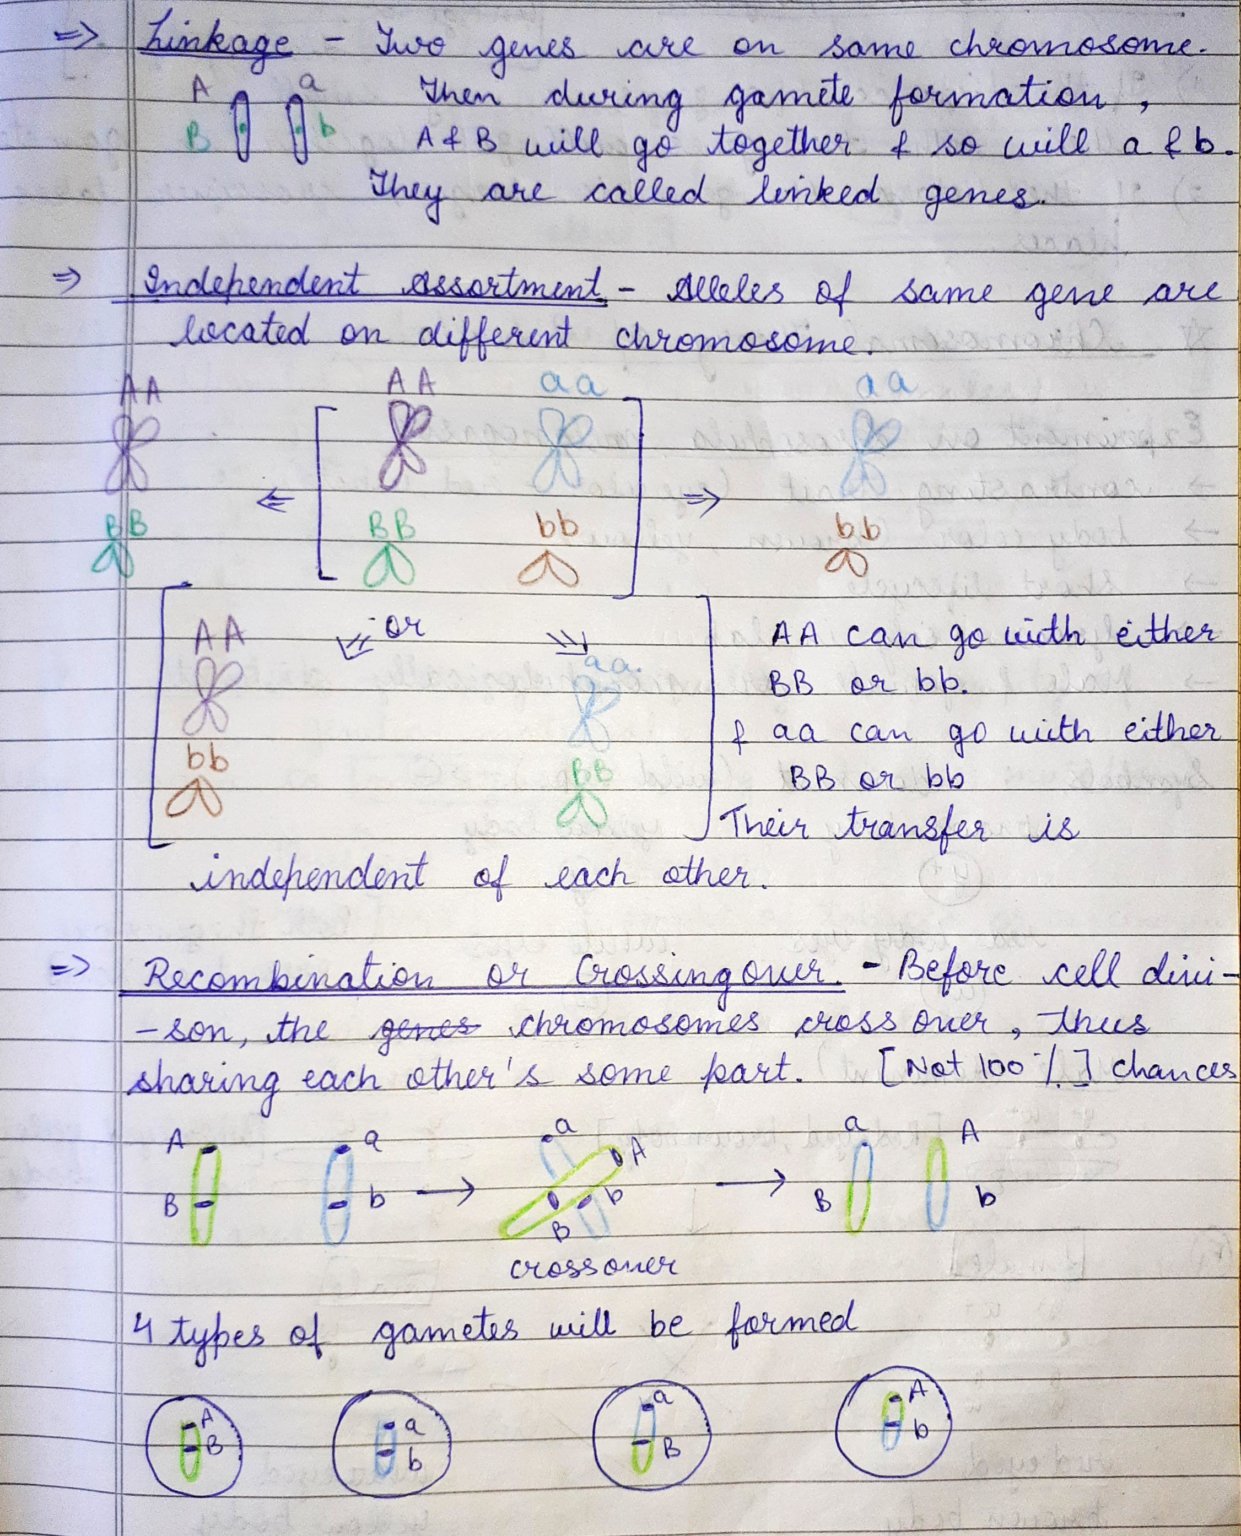 ⇒ Linkage - Two genes are on same chromosome.
A a Then during gamete formation,
B b A & B will go together & so will a & b.
They are called linked genes.
⇒ Independent Assortment - Alleles of same gene are
located on different chromosome.
AA AA aa aa
⇐ ⇒
BB BB bb bb
or
AA aa. AA can go with either
BB or bb.
& aa can go with either
bb BB BB or bb
Their transfer is
independent of each other.
⇒ Recombination or Crossing over. - Before cell divi-
-son, the genes chromosomes cross over, thus
sharing each other's some part. [Not 100 %] chances
A a → a A → a A
B b B b B b
crossover
4 types of gametes will be formed
A a a A
B b B b